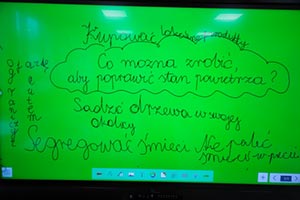 Kupować lokalne produkty
Co można zrobić,
aby poprawić stan powietrza?
Sadzić drzewa w swojej
okolicy
Segregować śmieci
Nie palić
śmieci w piecu